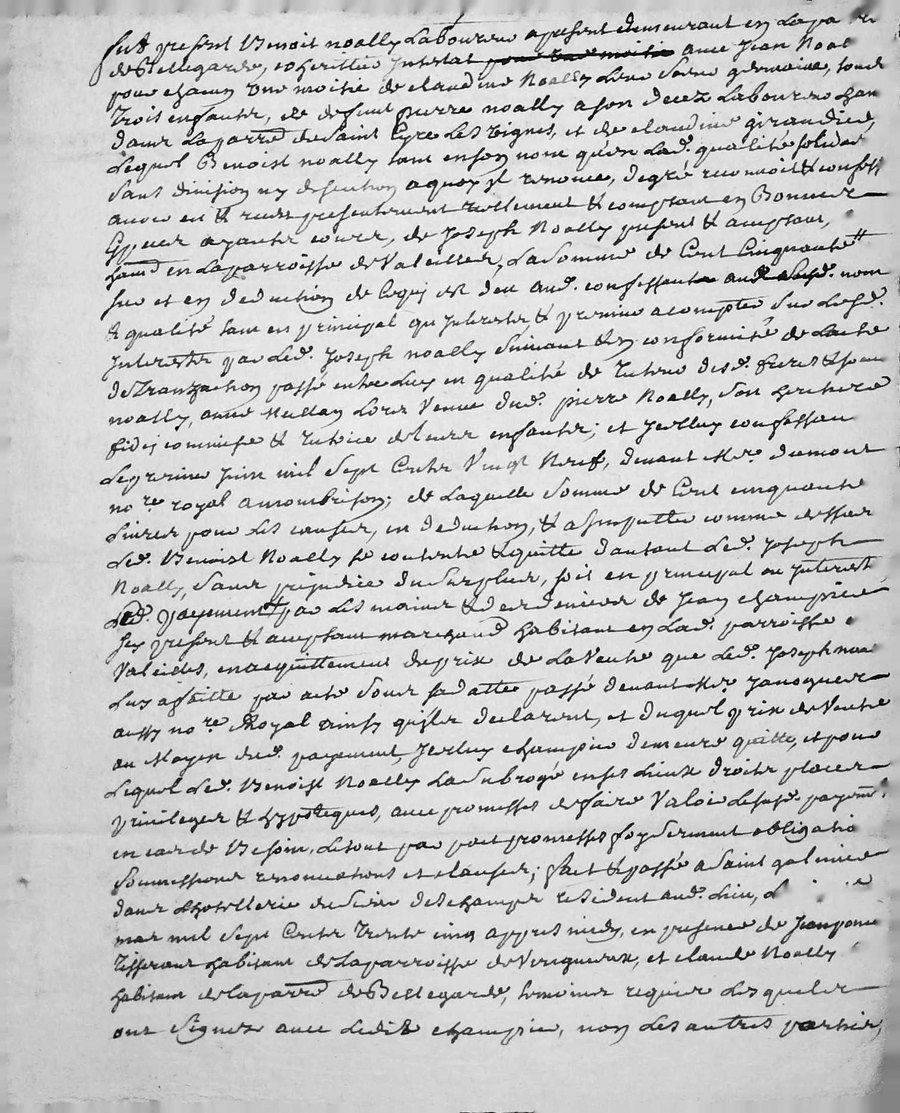 fut present Benoit noally Laboureur a present demeurant en La pa
de Bellegarde, coheritier Intestat pour une moitié avec Jean Noal
pour chacun une moitié de claudine Noally Leur Soeur germaine, tous
Trois enfants, de defunt pierre noally a son decez Laboureur han
dans La parre de Saint Cyre Les Vignes, et de claudine girardier,
Lequel Benoist noally tant en son nom qu'en Lad. qualité solidai
sans division ny discution a quoy il renonce, de gré reconnoit & confess
avoir eu & receu presentement reellement & comptant en Bonnes
Especes ayants cours, de Joseph Noally present & acceptant,
hand en La parroisse de Valeilles, La Somme de Cent Cinquante tt
sur et en deduction de ce qui est deu aud. confessant aud. nom
& qualité tant en principal qu Interests & premier acompte Sur Lesd.
Interests par Led. Joseph noally Suivant & en conformité de Lacte
de Tranzaction passé entre Luy en qualité de Tuteur desd. freres &
noally, anne Mellay Lors Veuve dud. pierre Noally, Son heritiere
fideicommise & tutrice de Leurs enfants; et Jcelluy confessan
Le premier Juin mil Sept Cents Vingt Neuf, devant Me. dumont
no.re royal a montbrison; de Laquelle Somme de Cent cinquante
Livres pour Les causes, en deduction, & a Jmputter comme dessus
Led. Benoist Noally se contente & quitte d'autant Led. Joseph
Noally, Sans prejudice du Surplus, soit en principal ou Interest
Led. payement par Les mains & des deniers de Jean champier
Jcy present & acceptant marchand habitant en Lad. parroisse
Valeilles, en acquittement du prix de La Vente que Led. Joseph noa
Luy a faitte par acte Sous sa datte passé devant Me. Janoguer
aussy no.re Royal ainsy qu'ils declarent, et duquel prix de Vente
au Moyen dud. payement, Jcelluy champier demeure quitte, et pour
Lequel Led. Benoist Noally La Subrogé en ses Lieux droits places
privileges & hypoteques, avec promesses de faire Valoir Lesusd. payemt.
en cas de Besoin, Le tout par part promesses foy Serment obligatio
Soumissions renonciations et clauses; fait & passé a Saint galmier
dans L'hotellerie du Sieur deschamps resident aud. Lieu,
mar mil Sept Cents Trente cinq appres midy, en presence de Jean ponce
Tisserant habitant de La parroisse de Viricqueux, et claude Noally
habitant de La parre. de Bellegarde, temoins requis Lesquels
ont Signez avec Ledit champier, non Les autres parties,